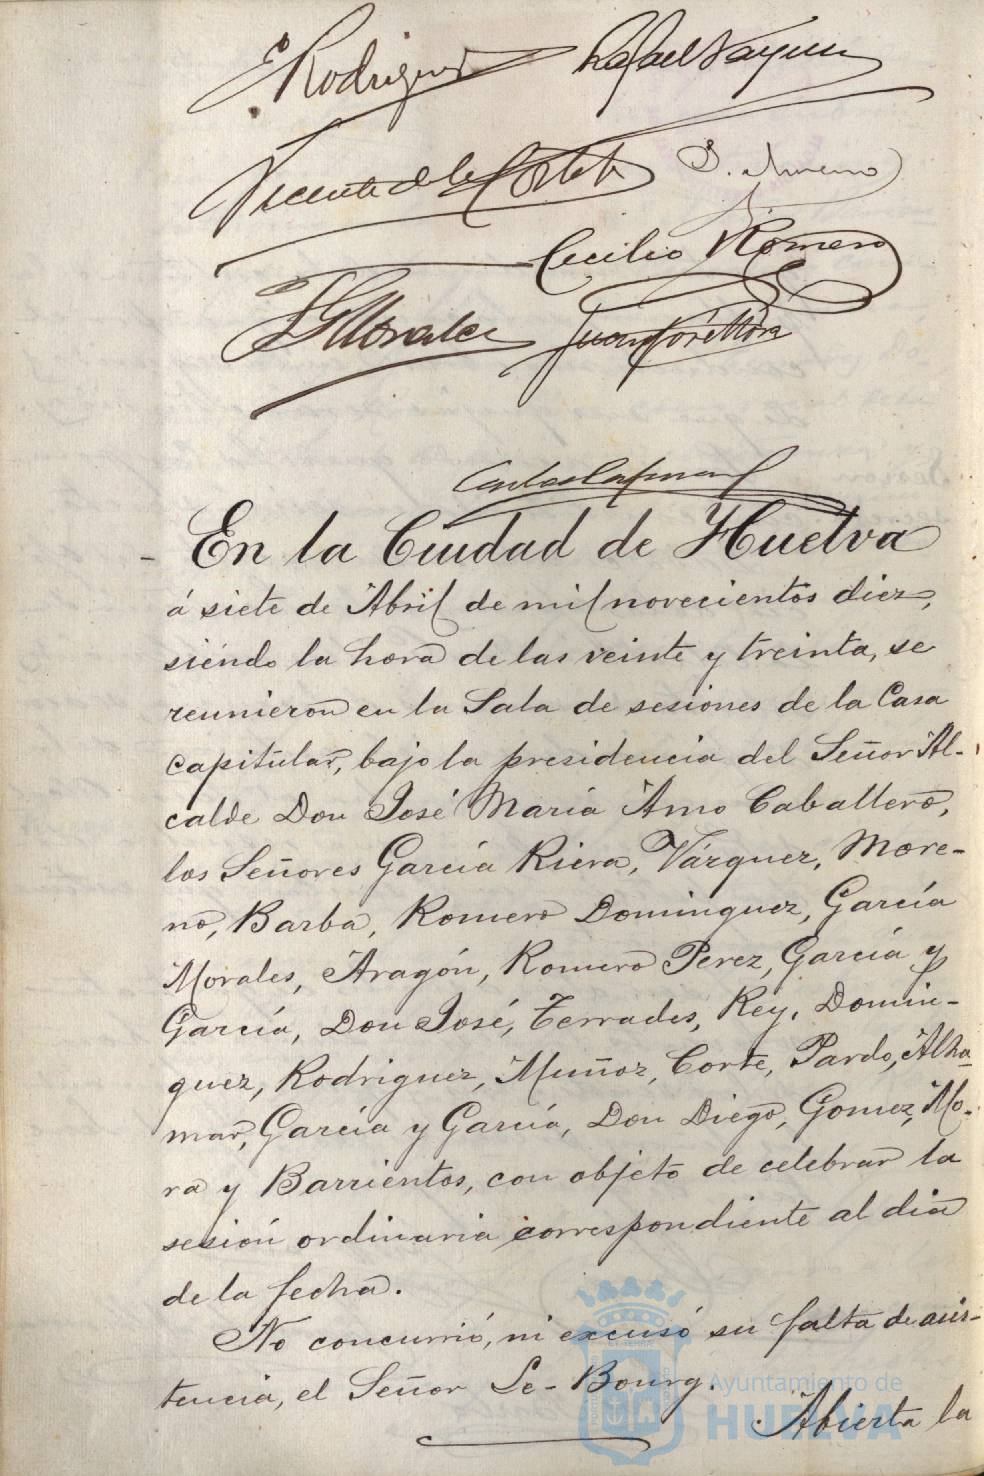 E. Rodriguez Rafael Vazquez
Vicente de la Corte
J. Moreno
Cecilio Romero
J G Morales
En la Ciudad de Huelva
á siete de Abril de mil novecientos diez,
siendo la hora de las veinte y treinta, se
reunieron en la Sala de sesiones de la Casa
capitular, bajo la presidencia del Señor Al-
calde Don José María Amo Caballero,
los Señores García Riera, Vázquez, More-
no, Barba, Romero Dominguez, García
Morales, Aragón, Romero Perez, García y
García, Don José, Terrades, Rey, Domin-
guez, Rodriguez, Muñoz, Corte, Pardo, Alha-
mar, García y García, Don Diego, Gomez, Mo-
ra y Barrientos, con objeto de celebrar la
sesión ordinaria correspondiente al dia
de la fecha.
No concurrió, ni excusó su falta de asis-
tencia, el Señor Le-Bourg.
Abierta la
Ayuntamiento de
HUELVA